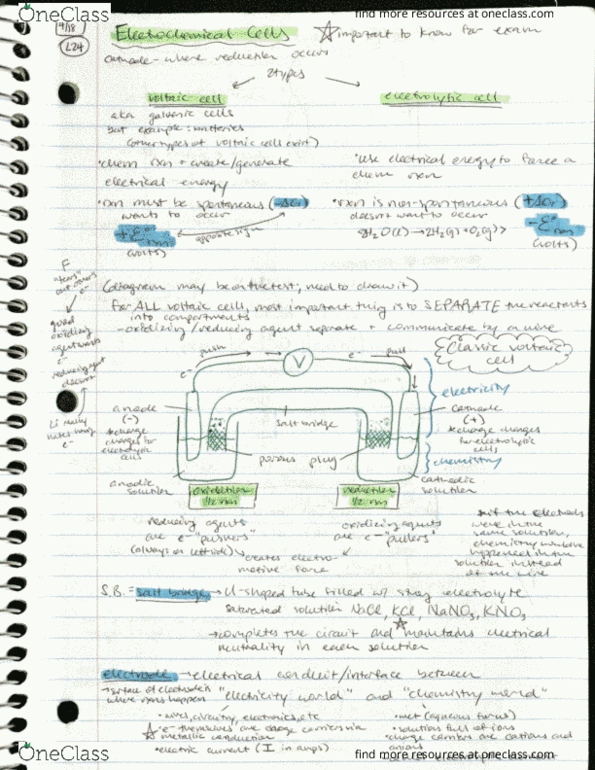 OneClass
find more resources at oneclass.com
9/18
L24
Electrochemical Cells
☆ important to know for exam
cathode - where reduction occurs
2 types
voltaic cell
electrolytic cell
aka galvanic cells
but example: batteries
(other types of voltaic cells exist)
• chem rxn → create/generate
electrical energy
• use electrical energy to force a
chem rxn
• rxn must be spontaneous (-ΔG)
wants to occur
• rxn is non-spontaneous (+ΔG)
doesn't want to occur
opposite sign
+E°rxn
(volts)
-E°rxn
(volts)
(diagram may be on the test; need to draw it)
for ALL voltaic cells, most important thing is to SEPARATE the reactants
into compartments
- oxidizing/reducing agent separate + communicate by a wire
F
good
oxidizing
agent wants
e-
reducing agent
doesn't
Li really
hates having
e-
Classic voltaic
cell
push
e-
V
e-
pull
electricity
chemistry
anode
(-)
*charge
changes for
electrolytic
cells
salt bridge
cathode
(+)
*charge changes
for electrolytic
cells
porous plug
anodic
solution
cathodic
solution
oxidation
1/2 rxn
reduction
1/2 rxn
reducing agents
are e- "pushers"
(always on left side)
oxidizing agents
are e- "pullers"
creates electro-
motive force
*if the electrodes
were in the
same solution,
chemistry would've
happened in the
solution instead
of the wire
S.B. = salt bridge → U-shaped tube filled w/ strong electrolyte
saturated solution NaCl, KCl, NaNO3, KNO3
→ completes the circuit and maintains electrical
neutrality in each solution
electrode → electrical conduit/interface between
"electricity world" and "chemistry world"
→ surface of electrode is
where rxns happen
• wires, circuitry, electronics, etc
☆ e- themselves are charge carriers via
metallic conduction
• electric current (I in amps)
• wet (aqueous forms)
• solutions full of ions
• charge carriers are cations and
anions
OneClass
find more resources at oneclass.com